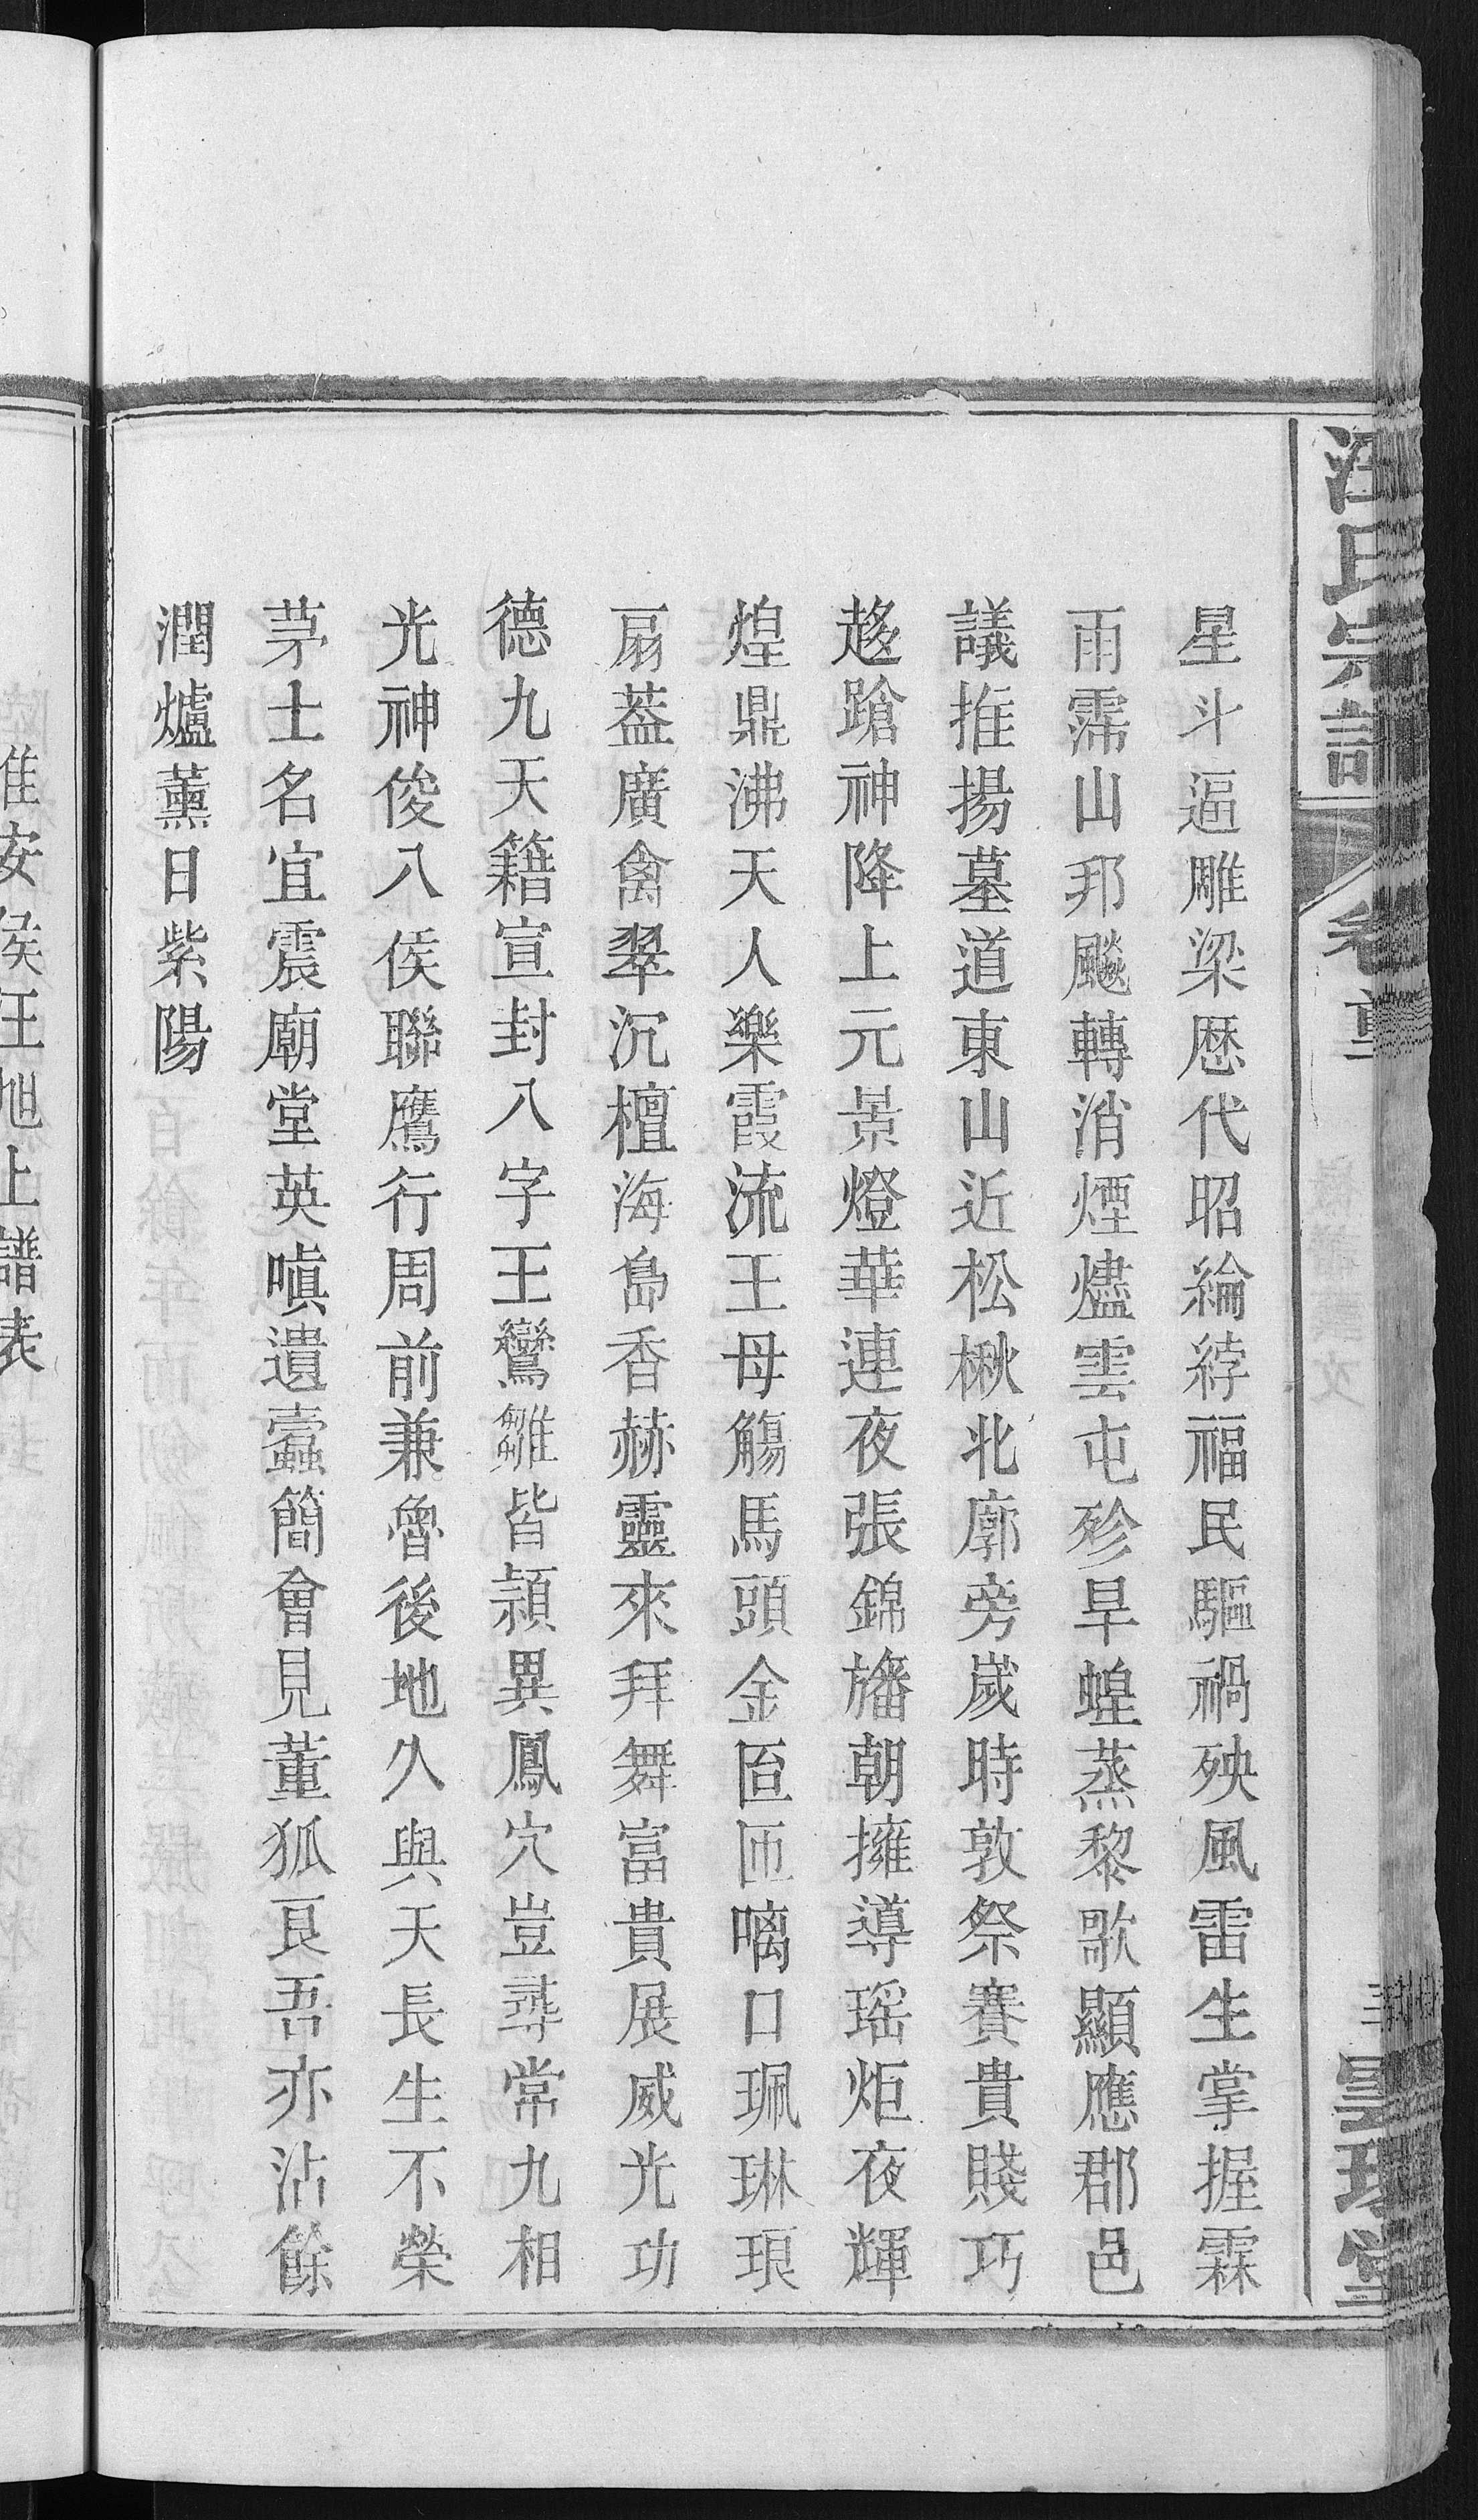 汪氏宗譜
卷首
星斗逼雕梁歷代昭綸綍福民驅禍殃風雷生掌握霖
雨霈山邦飈轉消煙燼雲屯殄旱蝗蒸黎歌顯應郡邑
議推揚墓道東山近松楸北廓旁歲時敦祭賽貴賤巧
趨蹌神降上元景燈華連夜張錦旛朝擁導瑶炬夜輝
煌鼎沸天人樂霞流王母觴馬頭金匼匝嘴口珮琳琅
扇葢廣禽翠沉檀海島香赫靈來拜舞富貴展威光功
德九天籍宣封八字王鸞雛皆頴異鳳穴豈尋常九相
光神俊八侯聯鷹行周前兼魯後地久與天長生不榮
茅士名宜震廟堂英嗔遺蠹簡會見董狐良吾亦沾餘
潤爐薰日紫陽
淮安侯王旭上譜表